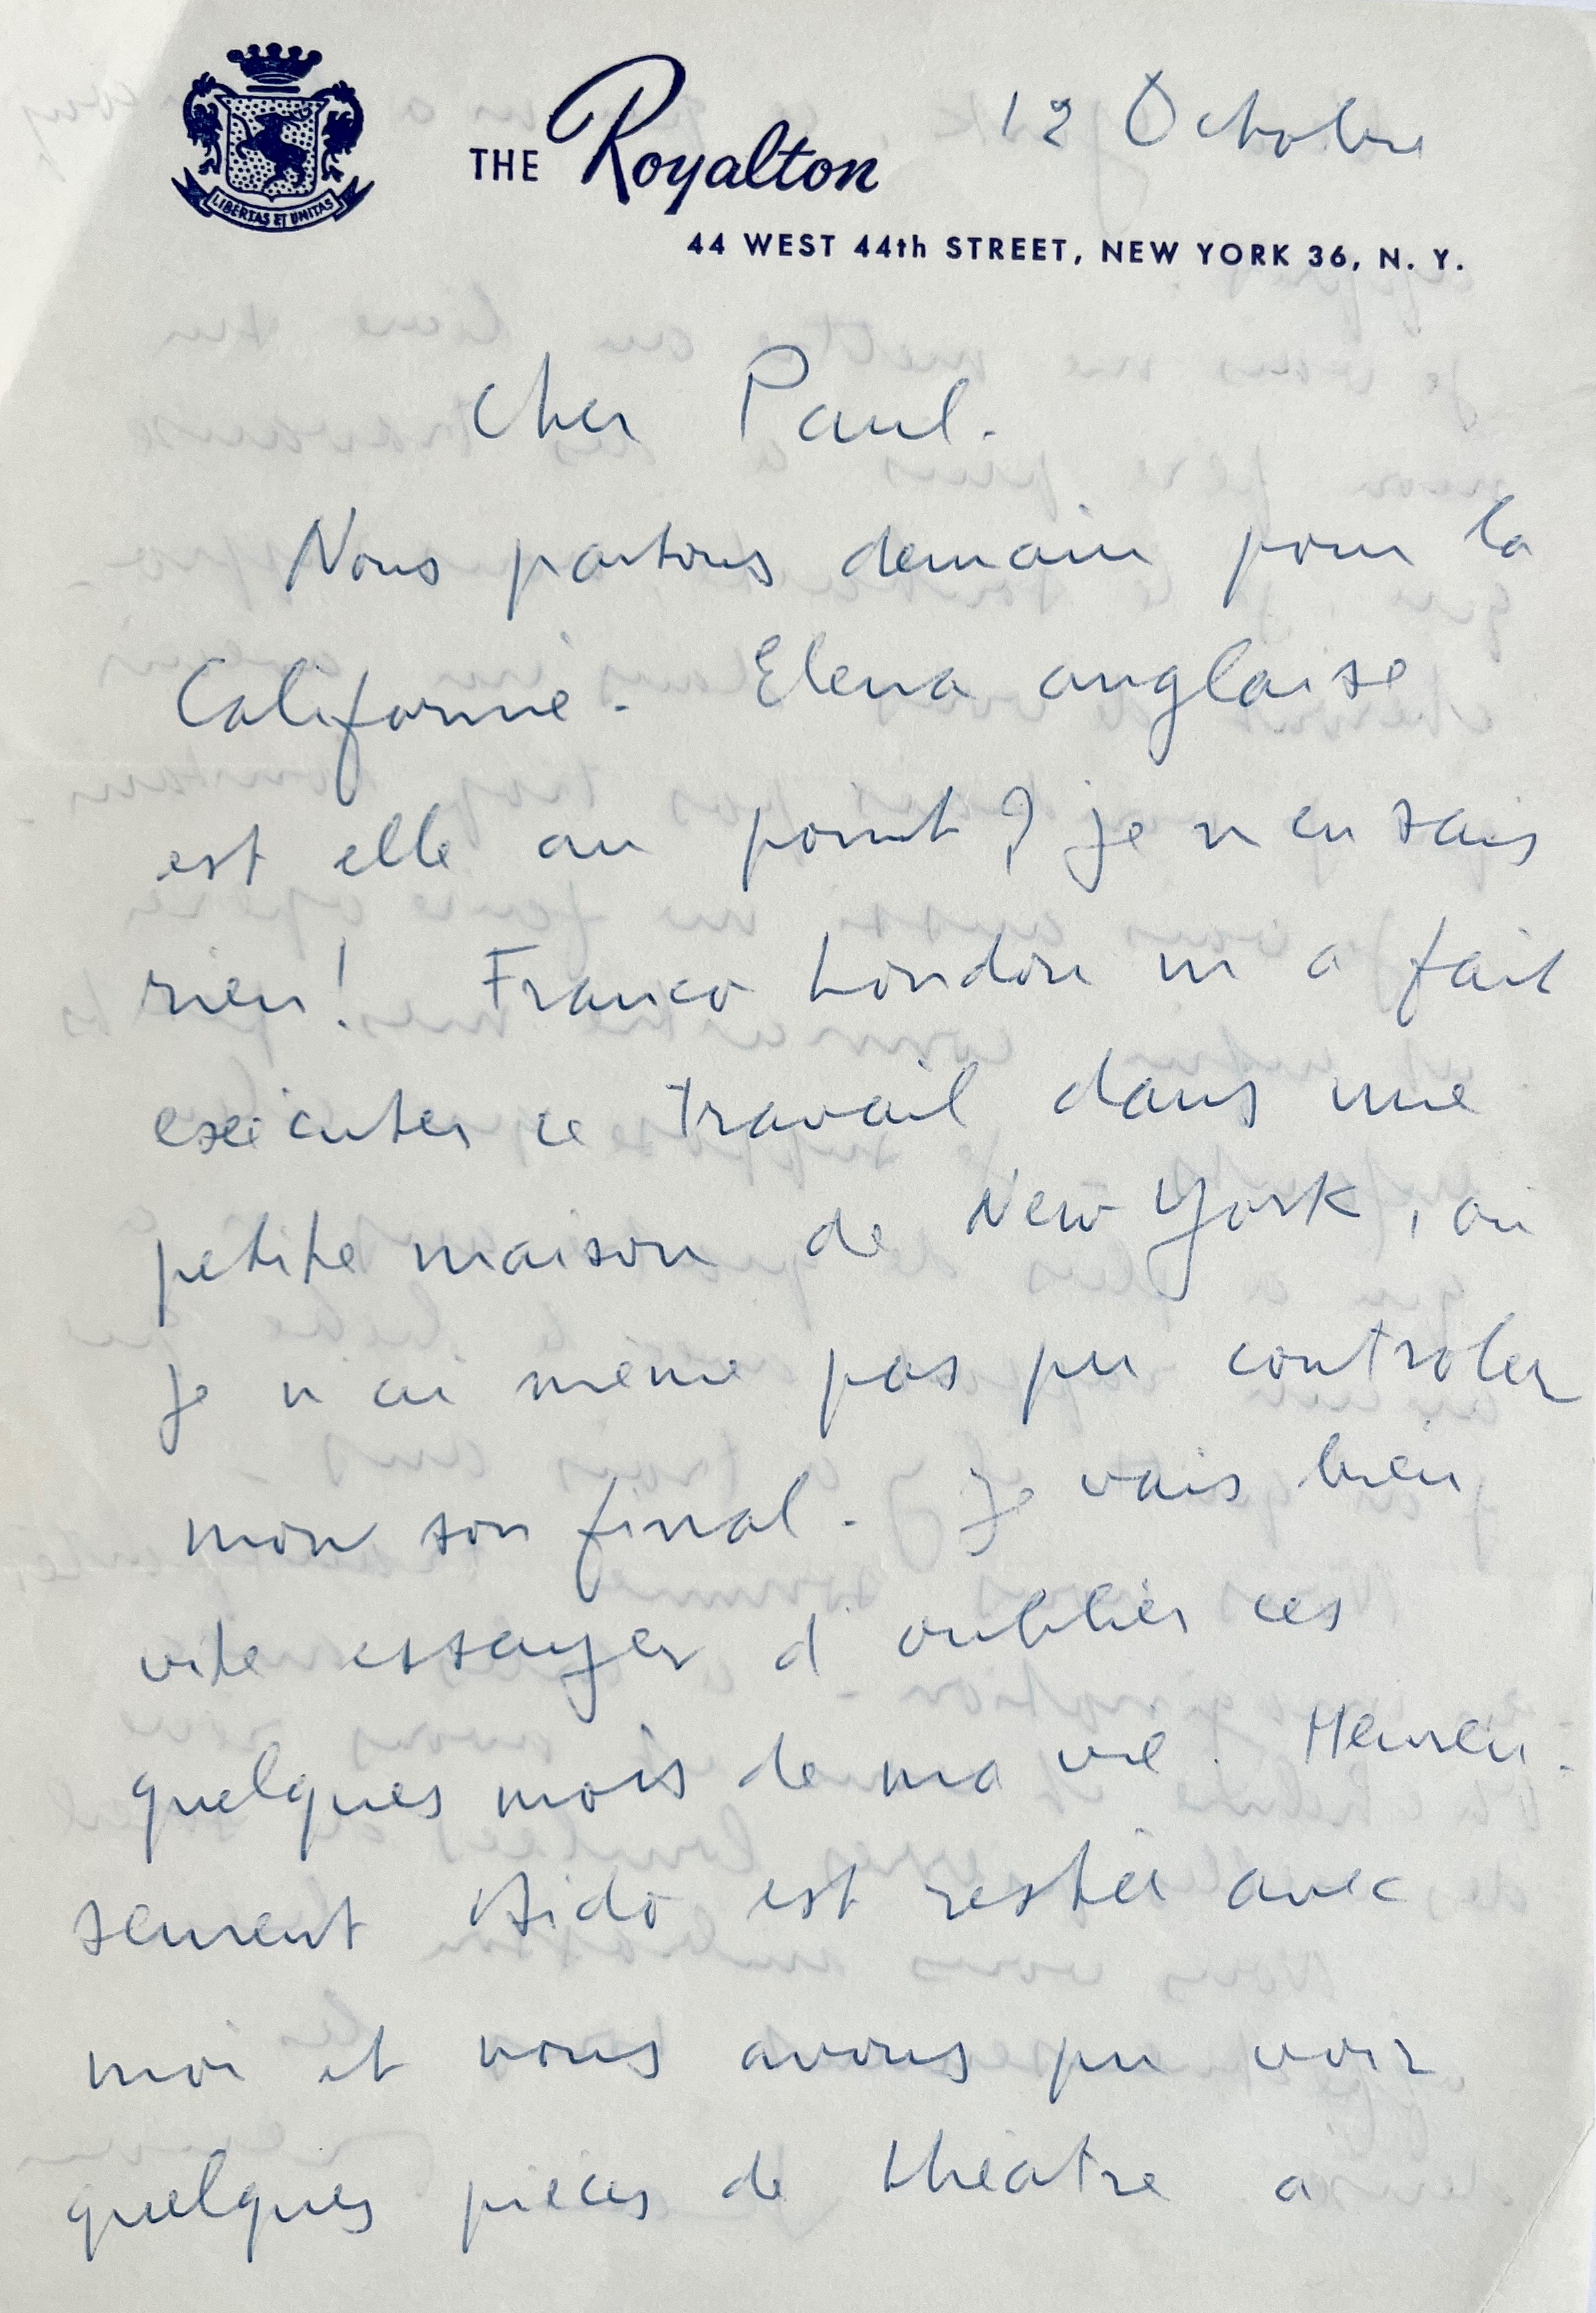 LIBERTAS ET UNITAS
THE Royalton
12 Octobre
44 WEST 44th STREET, NEW YORK 36, N. Y.
Cher Paul.
Nous partons demain pour la
Californie. Elena anglaise
est elle au point ? je n en sais
rien! Franco London m a fait
exécuter ce travail dans une
petite maison de New York, ou
je n ai même pas pu controler
mon son final. Je vais bien
vite essayer d'oublier ces
quelques mois de ma vie. Heureu-
sement Dido est restée avec
moi et nous avons pu voir
quelques pièces de théatre a